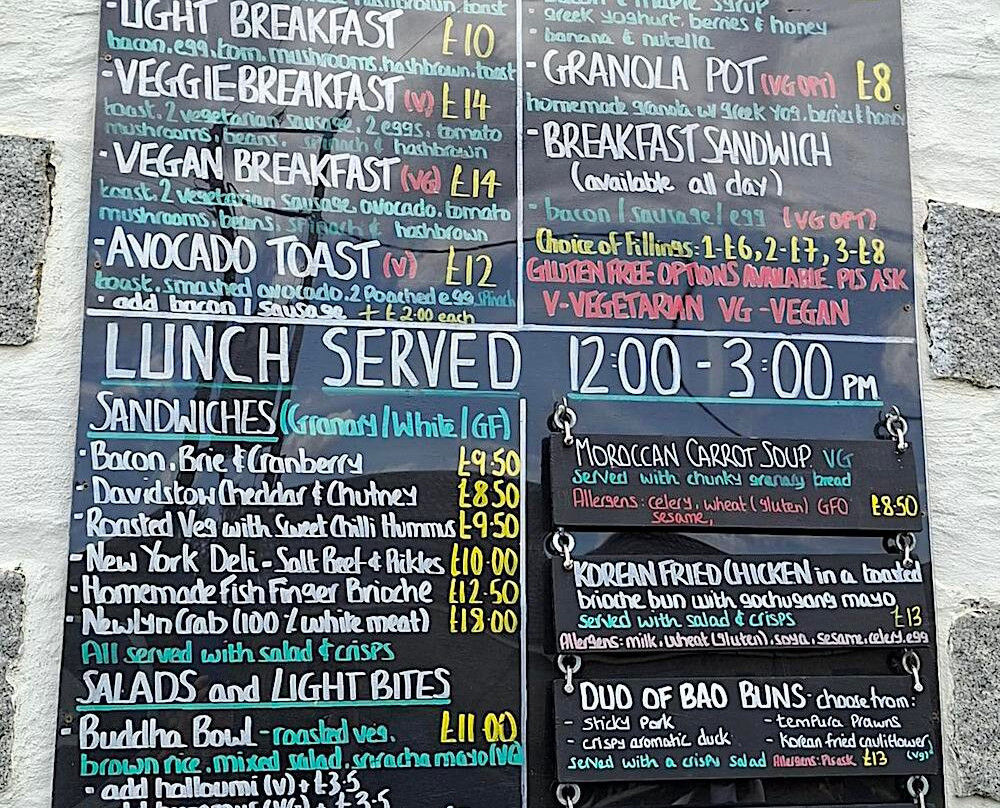 - LIGHT BREAKFAST £10
bacon, egg, tom, mushrooms, hashbrown, toast
- VEGGIE BREAKFAST (V) £14
toast, 2 vegetarian sausage, 2 eggs, tomato
mushrooms, beans, spinach & hashbrown
- VEGAN BREAKFAST (VG) £14
toast, 2 vegetarian sausage, avocado, tomato
mushrooms, beans, spinach & hashbrown
- AVOCADO TOAST (V) £12
toast, smashed avocado, 2 Poached egg spinach
· add bacon / sausage + £2.00 each
maple syrup
- greek yoghurt, berries & honey
- banana & nutella
- GRANOLA POT (VG OPT) £8
homemade granola w/ greek yog, berries & honey
- BREAKFAST SANDWICH
(available all day)
- bacon / sausage / egg (VG OPT)
Choice of Fillings: 1-£6, 2-£7, 3-£8
GLUTEN FREE OPTIONS AVAILABLE PLS ASK
V-VEGETARIAN VG-VEGAN
LUNCH SERVED 12:00 - 3:00 PM
SANDWICHES (Granary/White/GF)
- Bacon, Brie & Cranberry £9.50
- Davidstow Cheddar & Chutney £8.50
- Roasted Veg with Sweet Chilli Hummus £9.50
- New York Deli - Salt Beef & Pickles £10.00
- Homemade Fish Finger Brioche £12.50
- Newlyn Crab (100% white meat) £18.00
All served with salad & crisps
SALADS and LIGHT BITES
- Buddha Bowl - roasted veg, £11.00
brown rice, mixed salad, sriracha mayo (VG)
· add halloumi (V) + £3.5
MOROCCAN CARROT SOUP VG
Served with chunky granary bread
Allergens: celery, wheat (gluten) GFO £8.50
sesame,
KOREAN FRIED CHICKEN in a toasted
brioche bun with gochugang mayo
served with salad & crisps £13
Allergens: milk, wheat (gluten), soya, sesame, celery, egg
DUO OF BAO BUNS - choose from:
- Sticky Pork - tempura Prawns
- crispy aromatic duck - Korean fried cauliflower
served with a crispy salad Allergens: Pls ask £13 (vg)